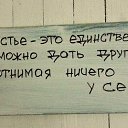 стье - это единстве
можно дать друг
отнимая ничего
у се